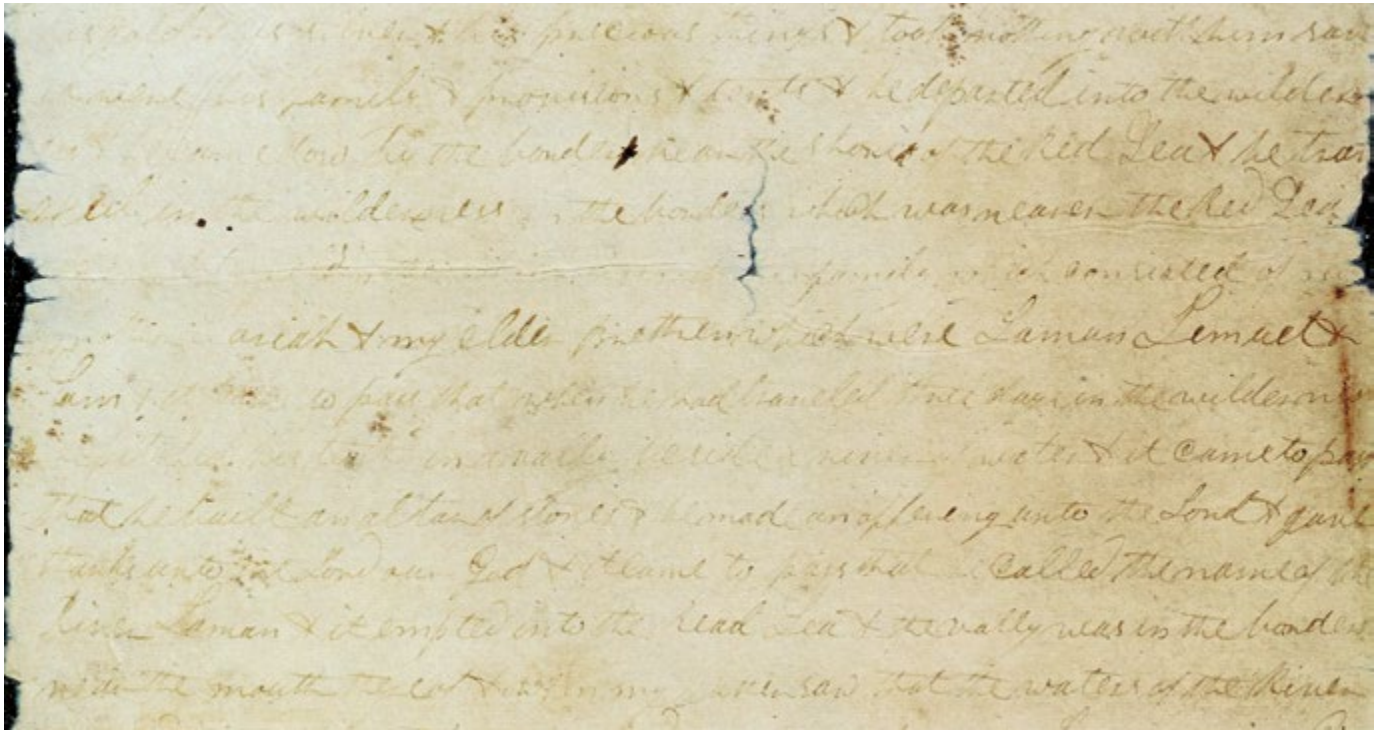 his gold & his silver & his precious things & took nothing with him save
it were his family & provisions & tents & he departed into the wilder
ness & he came down by the borders near the shore of the Red Sea & he trav
eled in the wilderness in the borders which was nearer the Red Sea
family which consisted of my
ariah & my elder brethren which were Laman Lemuel &
Sam & it came to pass that when he had traveled three days in the wilderness
he pitched his tent in a vally beside a river of water & it came to pass
that he built an altar of stones & he made an offering unto the Lord & gave
thanks unto the Lord our God & it came to pass that he called the name of the
River Laman & it empted into the read Sea & the vally was in the borders
near the mouth there of & when my father saw that the waters of the River